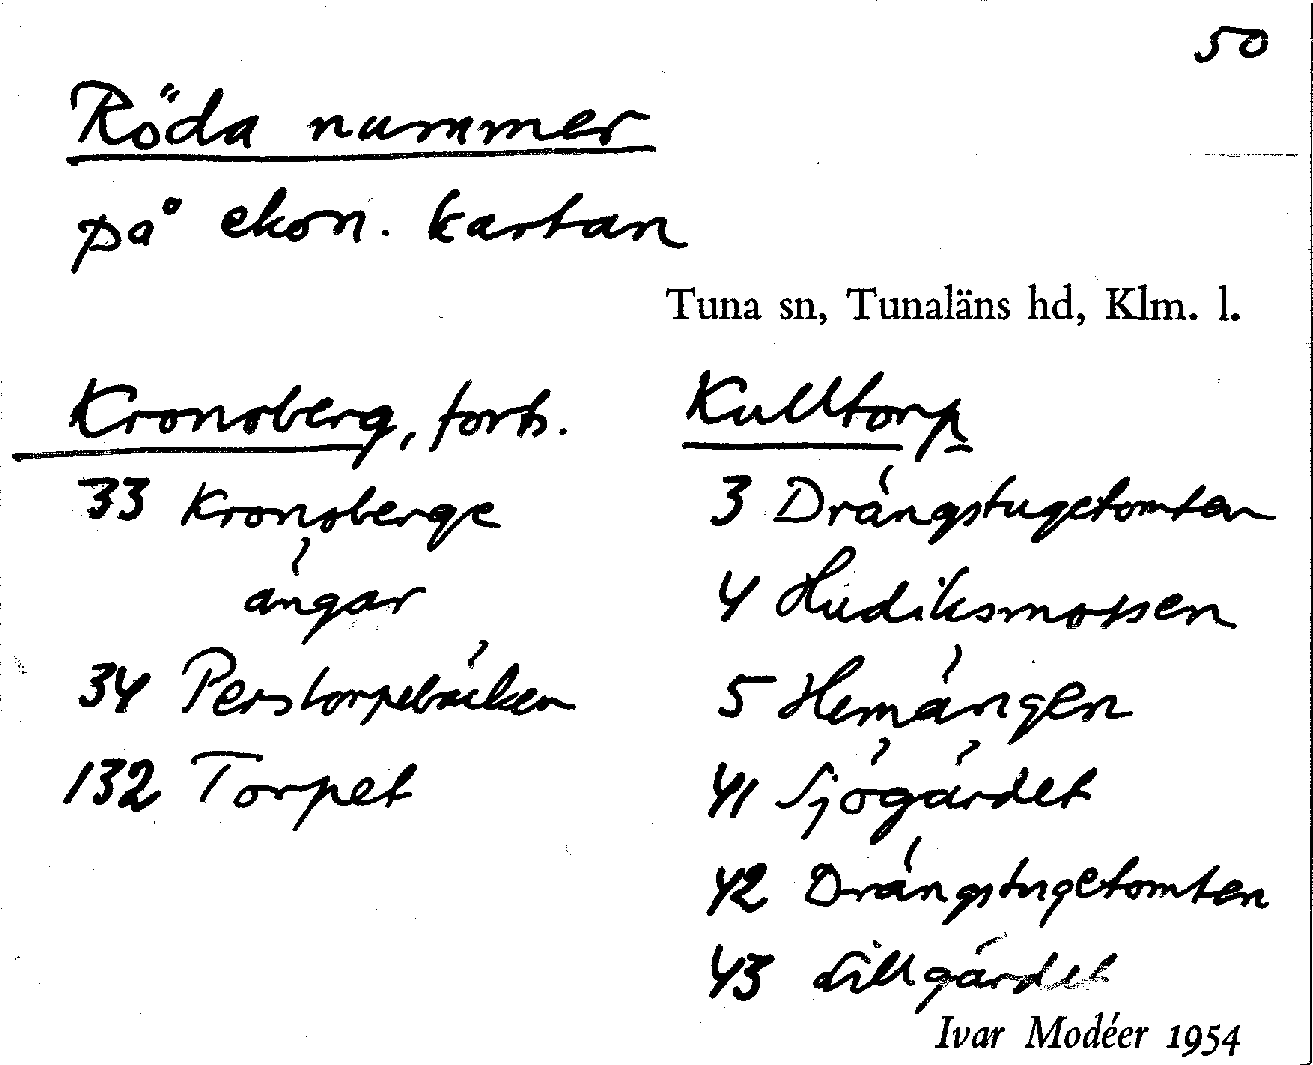 50
Röda nummer
på ekon. kartan
Tuna sn, Tunaläns hd, Klm. l.
Kronsberg, forts.
33 Kronsberge
ängar
34 Perstorpebäcken
132 Torpet
Kulltorp
3 Drängstugetomten
4 Hudiksmossen
5 Hemängen
41 Sjögärdet
42 Drängstugetomten
43 Lillgärdet
Ivar Modéer 1954